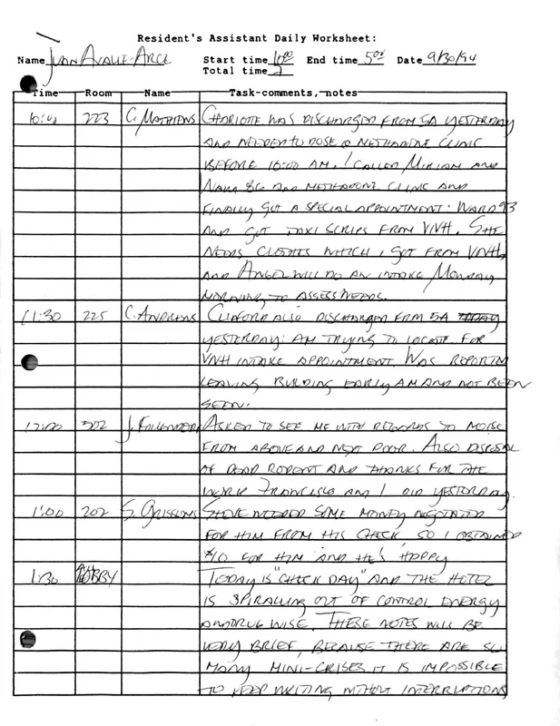 Resident's Assistant Daily Worksheet:
Name JUAN AYALE-ARCE Start time 10:00 End time 5:00 Date 9/30/94
Total time
Time Room Name Task-comments, notes
10:00 223 C. MATHEWS CHARLOTTE WAS DISCHARGED FROM 5A YESTERDAY
AND NEEDED TO DOSE @ METHADONE CLINIC
BEFORE 10:00 AM. I CALLED MIRIAM AND
86 AND METHADONE CLINIC AND
FINALLY GOT A SPECIAL APPOINTMENT: WARD 93
AND GOT TAXI SCRIPS FROM VNH. SHE
NEEDS CLOTHES WHICH I GOT FROM VNH,
AND ANGEL WILL DO AN INTAKE MONDAY
MORNING TO ASSESS NEEDS.
11:30 225 C. ANDREWS CLIFFORD ALSO DISCHARGED FROM 5A
YESTERDAY: AM TRYING TO LOCATE FOR
VNH INTAKE APPOINTMENT. WAS REPORTED
LEAVING BUILDING EARLY AM AND NOT BEEN
SEEN.
12:00 502 J. ASKED TO SEE ME WITH REGARDS TO NOISE
FROM ABOVE AND NEXT DOOR. ALSO DISPOSAL
OF DEAD RODENT AND THANKS FOR THE
WORK FRANCISCO AND I DID YESTERDAY.
1:00 202 S. GRISSOMS STEVE NEEDED SOME MONEY NEGOTIATED
FOR HIM FROM HIS CHECK, SO I OBTAINED
$10 FOR HIM AND HE'S HAPPY
1:30 LOBBY TODAY IS "CHECK DAY" AND THE HOTEL
IS SPIRALLING OUT OF CONTROL ENERGY
AND DRUG WISE. THESE NOTES WILL BE
VERY BRIEF, BECAUSE THERE ARE SO
MANY MINI-CRISES IT IS IMPOSSIBLE
TO KEEP WRITING WITHOUT INTERRUPTIONS